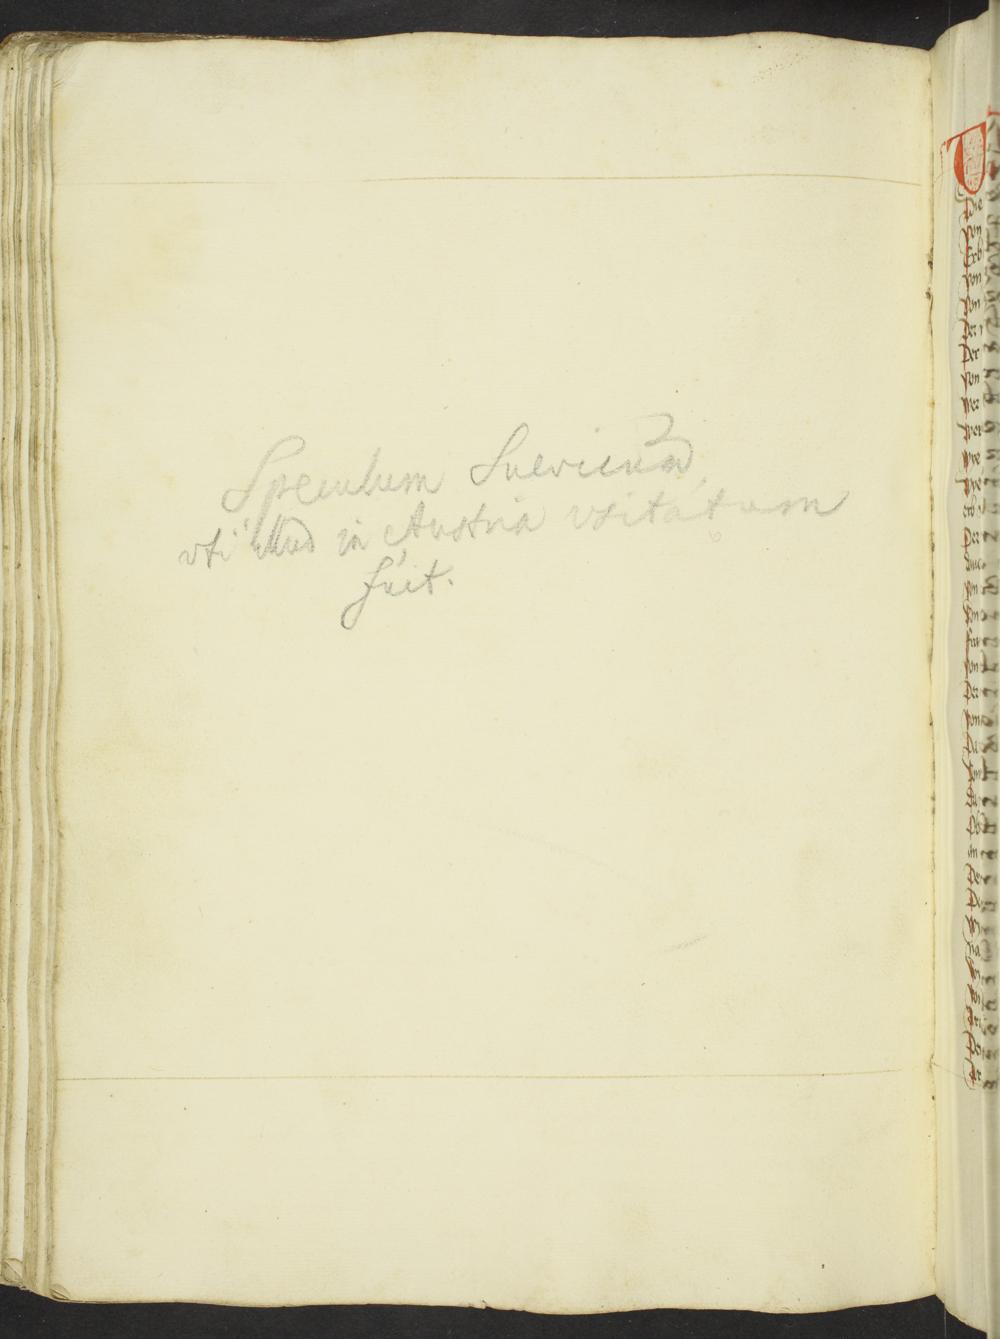 Speculum Suevicum
vti illud in Austria vsitátum
fúit.